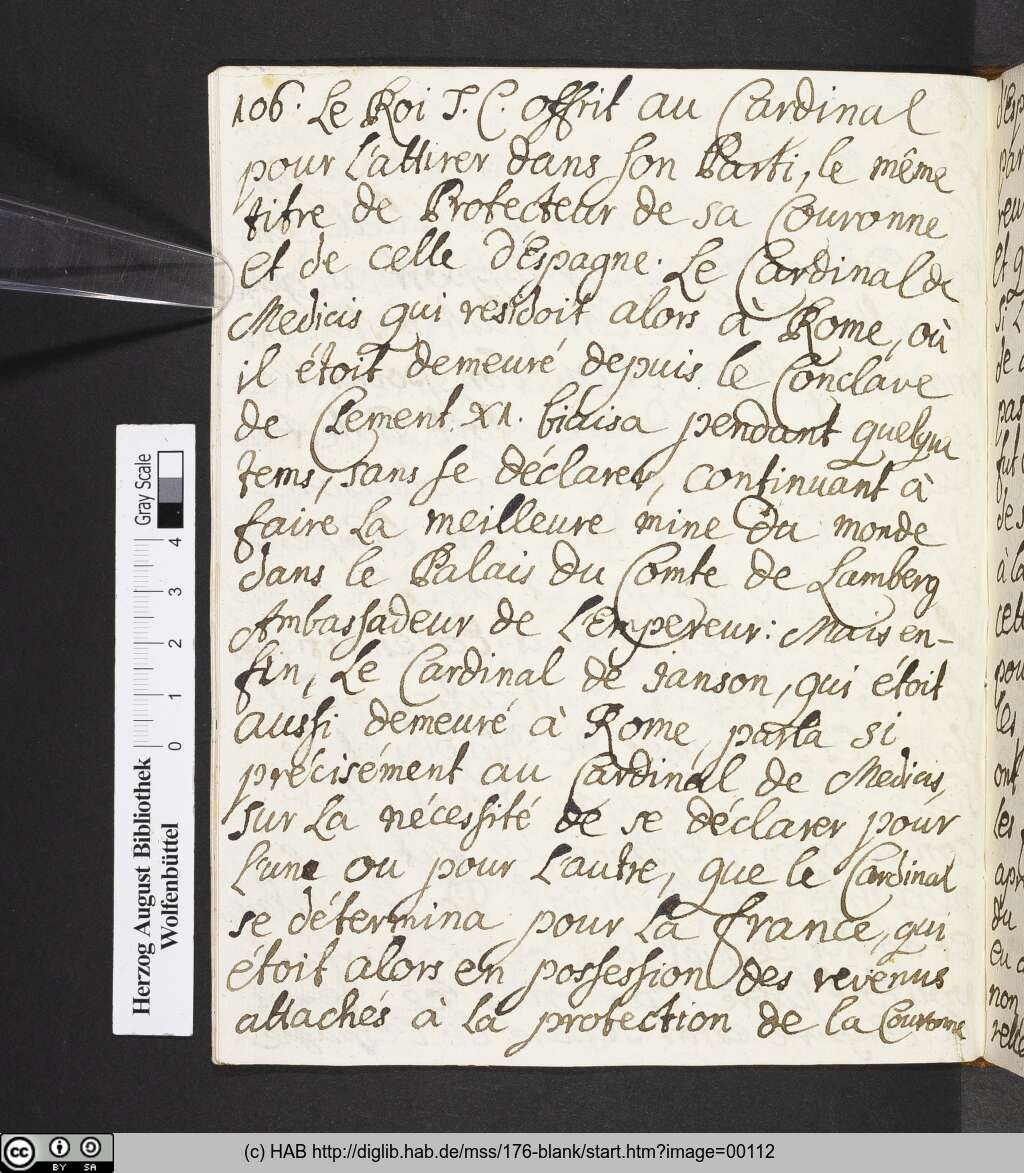 106. Le Roi T. C. offrit au Cardinal
pour l'attirer dans son Parti, le même
titre de Protecteur de sa Couronne
et de celle d'Espagne. Le Cardinal de
Medicis qui residoit alors à Rome, où
il étoit demeuré depuis le Conclave
de Clement XI. biaisa pendant quelque
tems, sans se déclarer, continuant à
faire la meilleure mine du monde
dans le Palais du Comte de Lamberg
Ambassadeur de l'Empereur: Mais en-
fin, le Cardinal de Janson, qui étoit
aussi demeuré à Rome, parla si
précisément au Cardinal de Medicis,
sur la nécessité de se déclarer pour
l'une ou pour l'autre, que le Cardinal
se détermina pour la France, qui
étoit alors en possession des revenus
attachés à la protection de la Couronne
Gray Scale
0 1 2 3 4
Herzog August Bibliothek
Wolfenbüttel
cc BY SA
(c) HAB http://diglib.hab.de/mss/176-blank/start.htm?image=00112